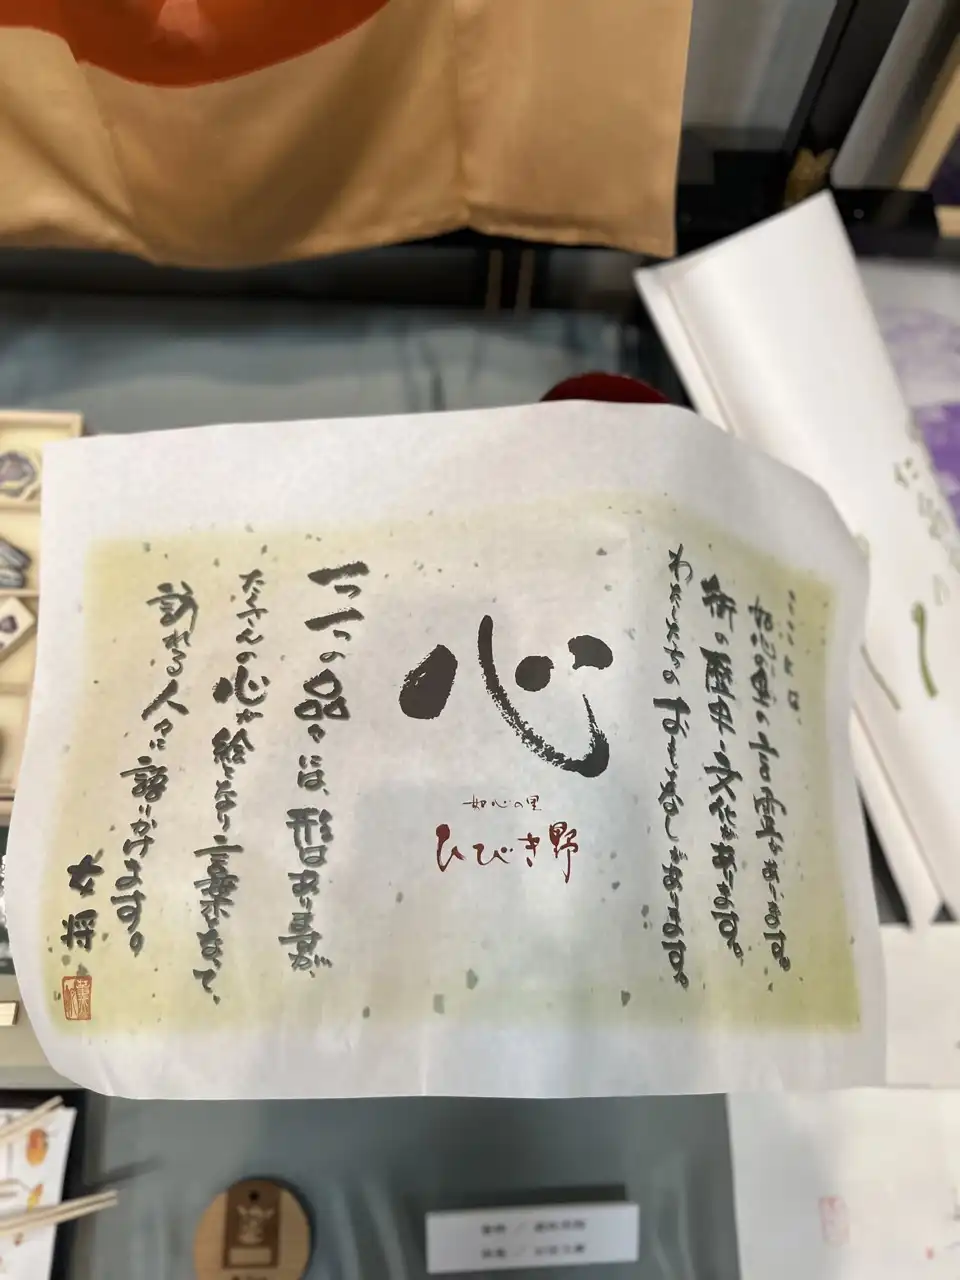 如心の里の言霊があります。
の 文化があります。
わたしたちのおもてなしがあります。
心
如心の里
ひびき野
一つ一つの品々には、形はありますが、
たくさんの心が絵となり言葉となって、
訪れる人々に語りかけます。
女将